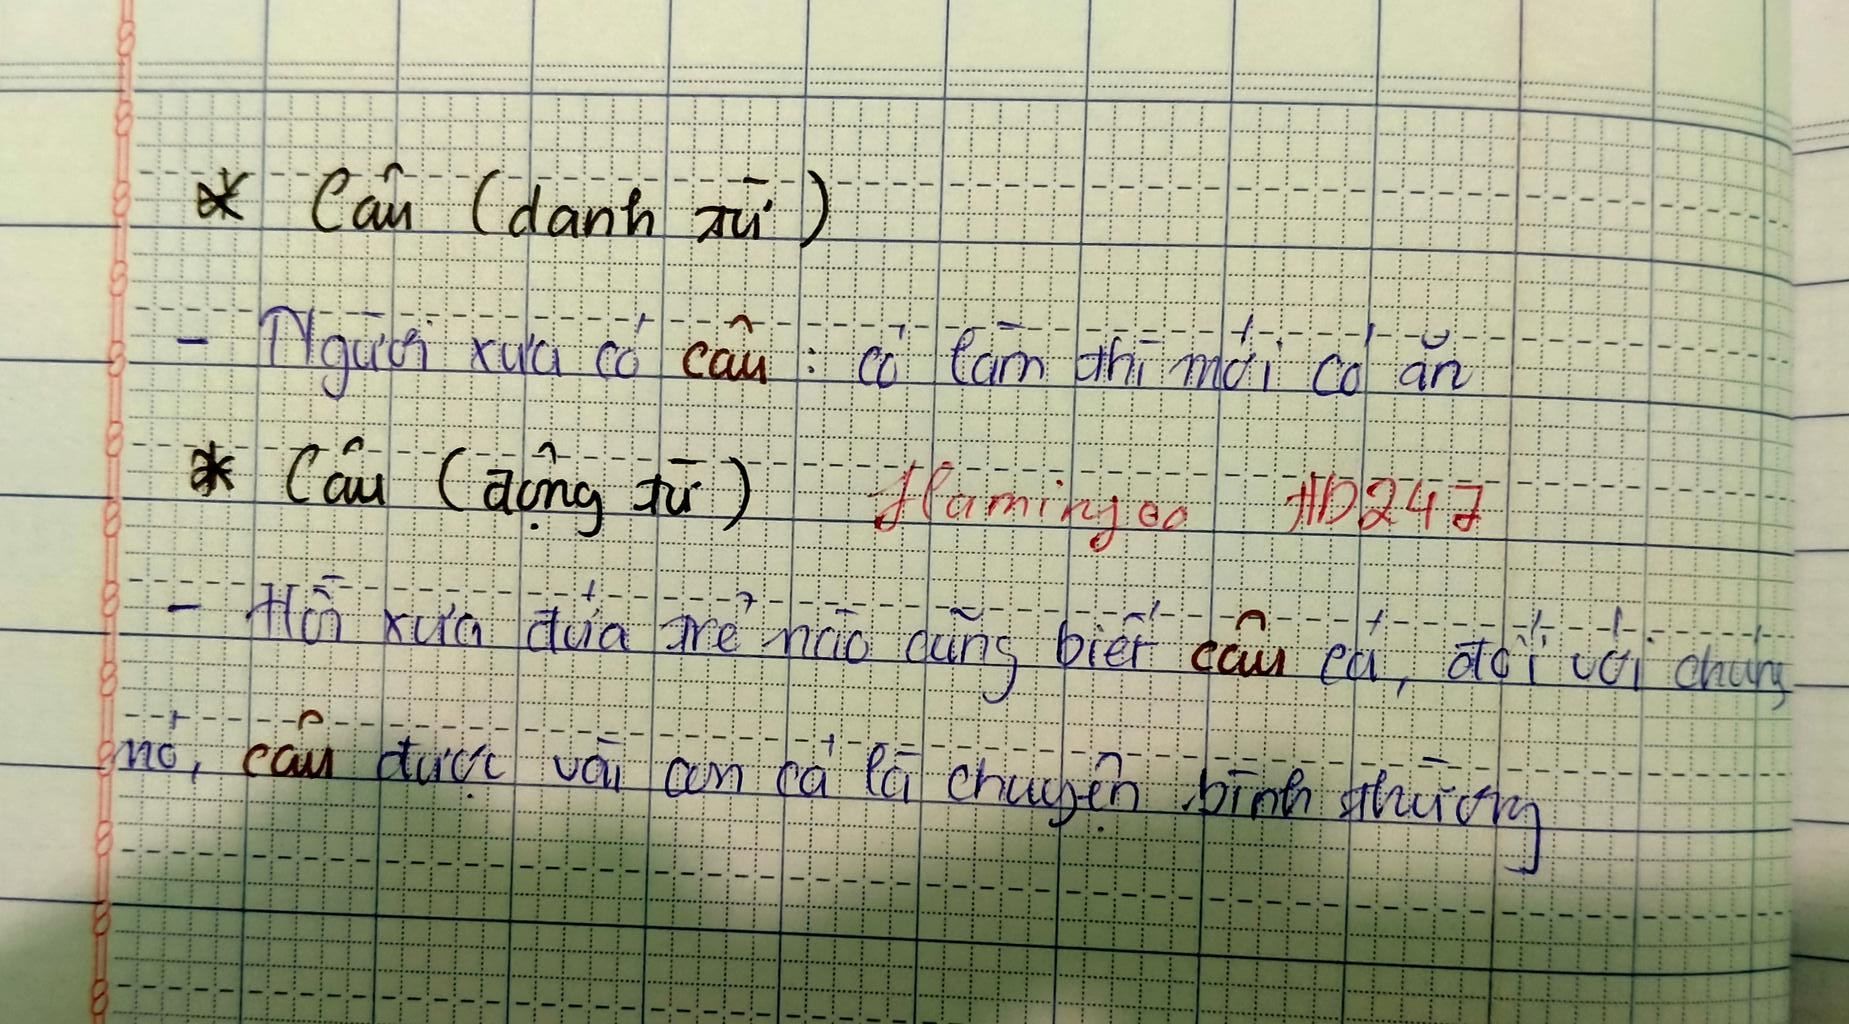 * Câu (danh từ)
- Người xưa có câu : có làm thì mới có ăn
* Câu (động từ) Flamingoo HD247
- Hồi xưa đứa trẻ nào cũng biết câu cá, đối với chúng
nó, câu được vài con cá là chuyện bình thường